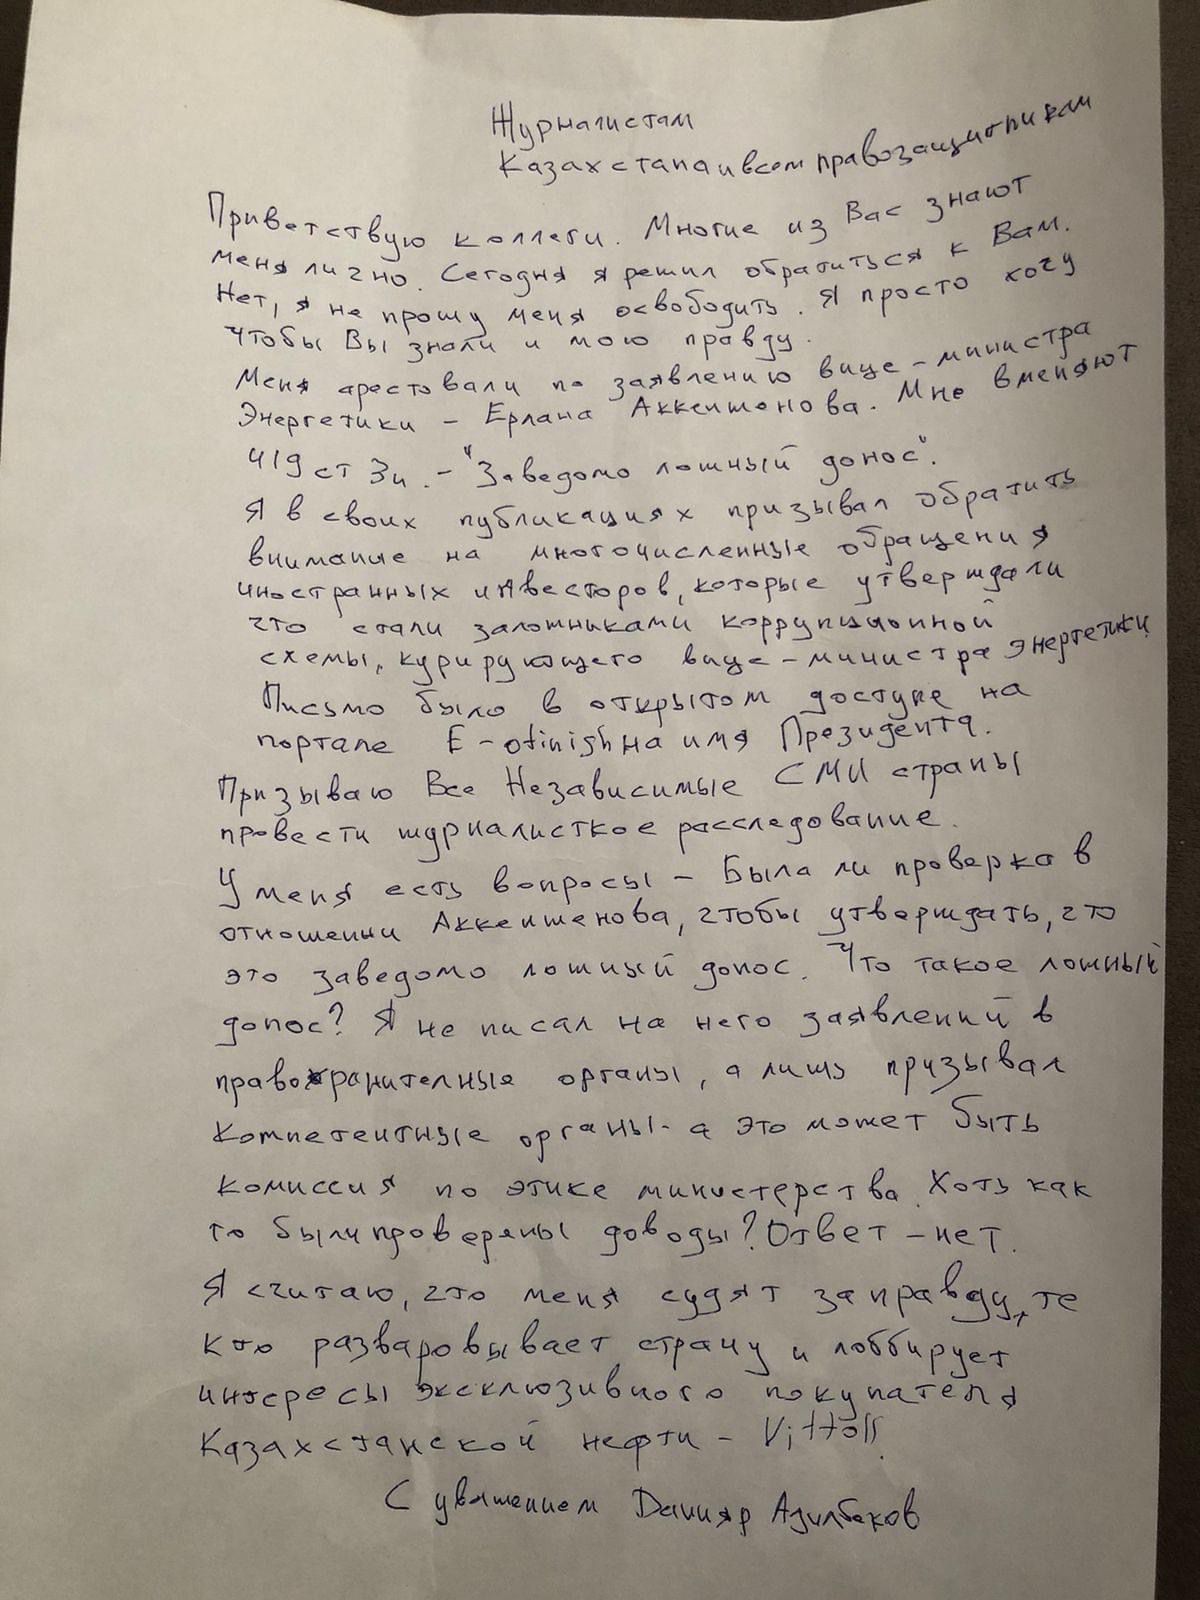 Журналистам
Казахстана и всем правозащитникам
Приветствую коллеги. Многие из Вас знают
меня лично. Сегодня я решил обратиться к Вам.
Нет, я не прошу меня освободить. Я просто хочу
чтобы Вы знали и мою правду.
Меня арестовали по заявлению вице-министра
Энергетики - Ерлана Аккенженова. Мне вменяют
419 ст 3ч. - "Заведомо ложный донос".
Я в своих публикациях призывал обратить
внимание на многочисленные обращения
иностранных инвесторов, которые утверждали
что стали заложниками коррупционной
схемы, курирующего вице-министра энергетики
Письмо было в открытом доступе на
портале E-otinish на имя Президента.
Призываю Все Независимые СМИ страны
провести журналисткое расследование.
У меня есть вопросы - Была ли проверка в
отношении Аккенженова, чтобы утверждать, что
это заведомо ложный донос. Что такое ложный
донос? Я не писал на него заявлений в
правохранителные органы, а лишь призывал
компетентные органы - а это может быть
комиссия по этике министерства. Хоть как
то были проверены доводы? Ответ - нет.
Я считаю, что меня судят за правду, те
кто разваровывает страну и лоббирует
интересы эксклюзивного покупателя
Казахстанской нефти - Vittoll.
С уважением Данияр Адилбеков